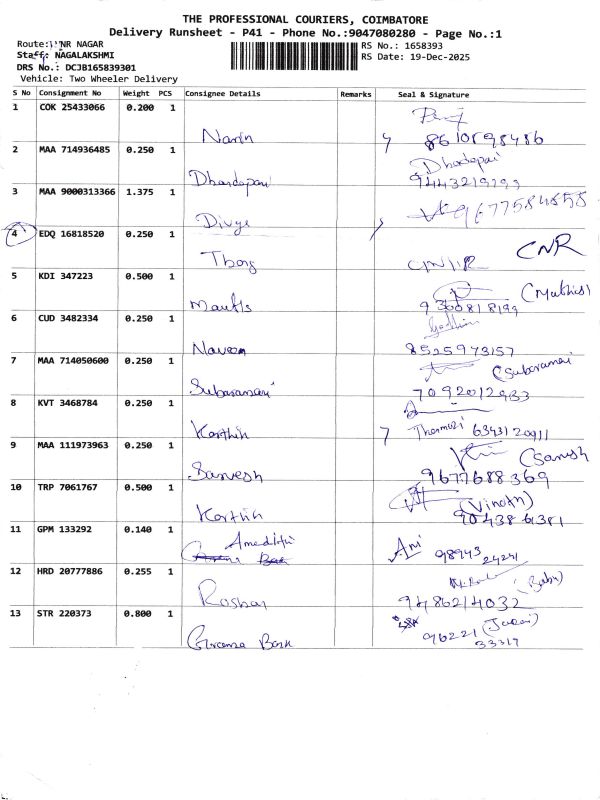 THE PROFESSIONAL COURIERS, COIMBATORE
Delivery Runsheet - P41 - Phone No.:9047080280 - Page No.:1
Route: NR NAGAR
RS No.: 1658393
Staff: NAGALAKSHMI
RS Date: 19-Dec-2025
DRS No.: DCJB165839301
Vehicle: Two Wheeler Delivery
S No Consignment No Weight PCS Consignee Details Remarks Seal & Signature
1 COK 25433066 0.200 1
Navin 8610898486
2 MAA 714936485 0.250 1
Dhandapani
3 MAA 9000313366 1.375 1
Divya 9677584858
4 EDQ 16818520 0.250 1
CNR
5 KDI 347223 0.500 1
9360818199
6 CUD 3482334 0.250 1
Naveen 8525973157
7 MAA 714050600 0.250 1
7092012933
8 KVT 3468784 0.250 1
Karthik 6343120911
9 MAA 111973963 0.250 1
Sarvesh 9677688369
10 TRP 7061767 0.500 1
(Vinoth)
Karthik
11 GPM 133292 0.140 1
98943
24241
12 HRD 20777886 0.255 1
(Babu)
9486214032
13 STR 220373 0.800 1
96221
33317
Bank